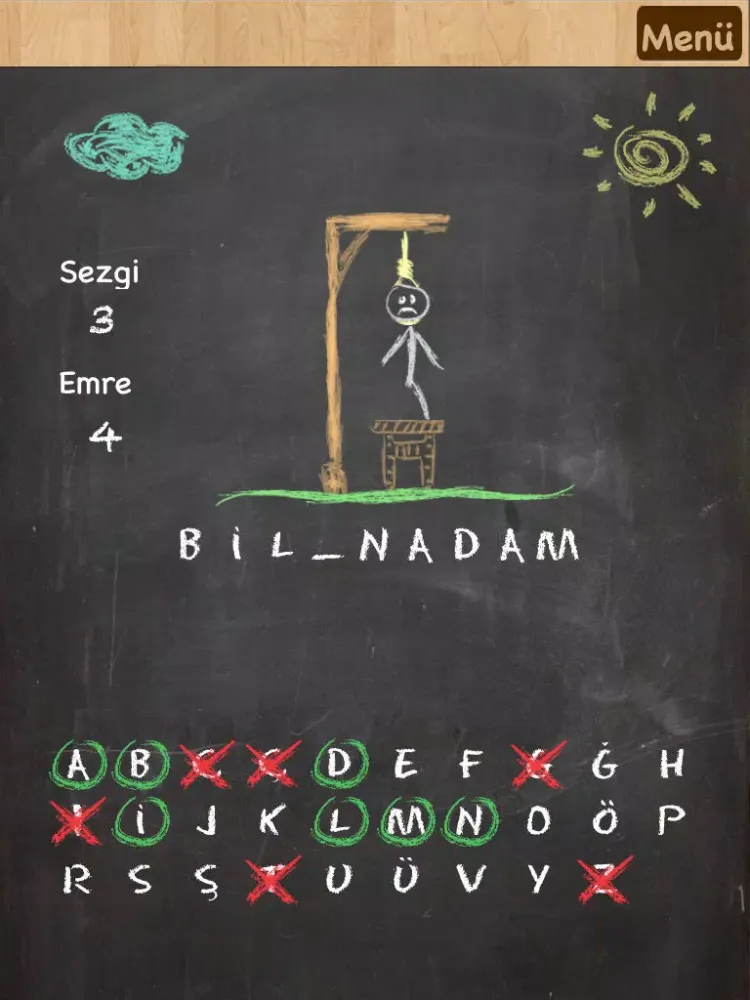 Menü
Sezgi
3
Emre
4
B İ L _ N A D A M
A B C Ç D E F G Ğ H
I İ J K L M N O Ö P
R S Ş T U Ü V Y Z